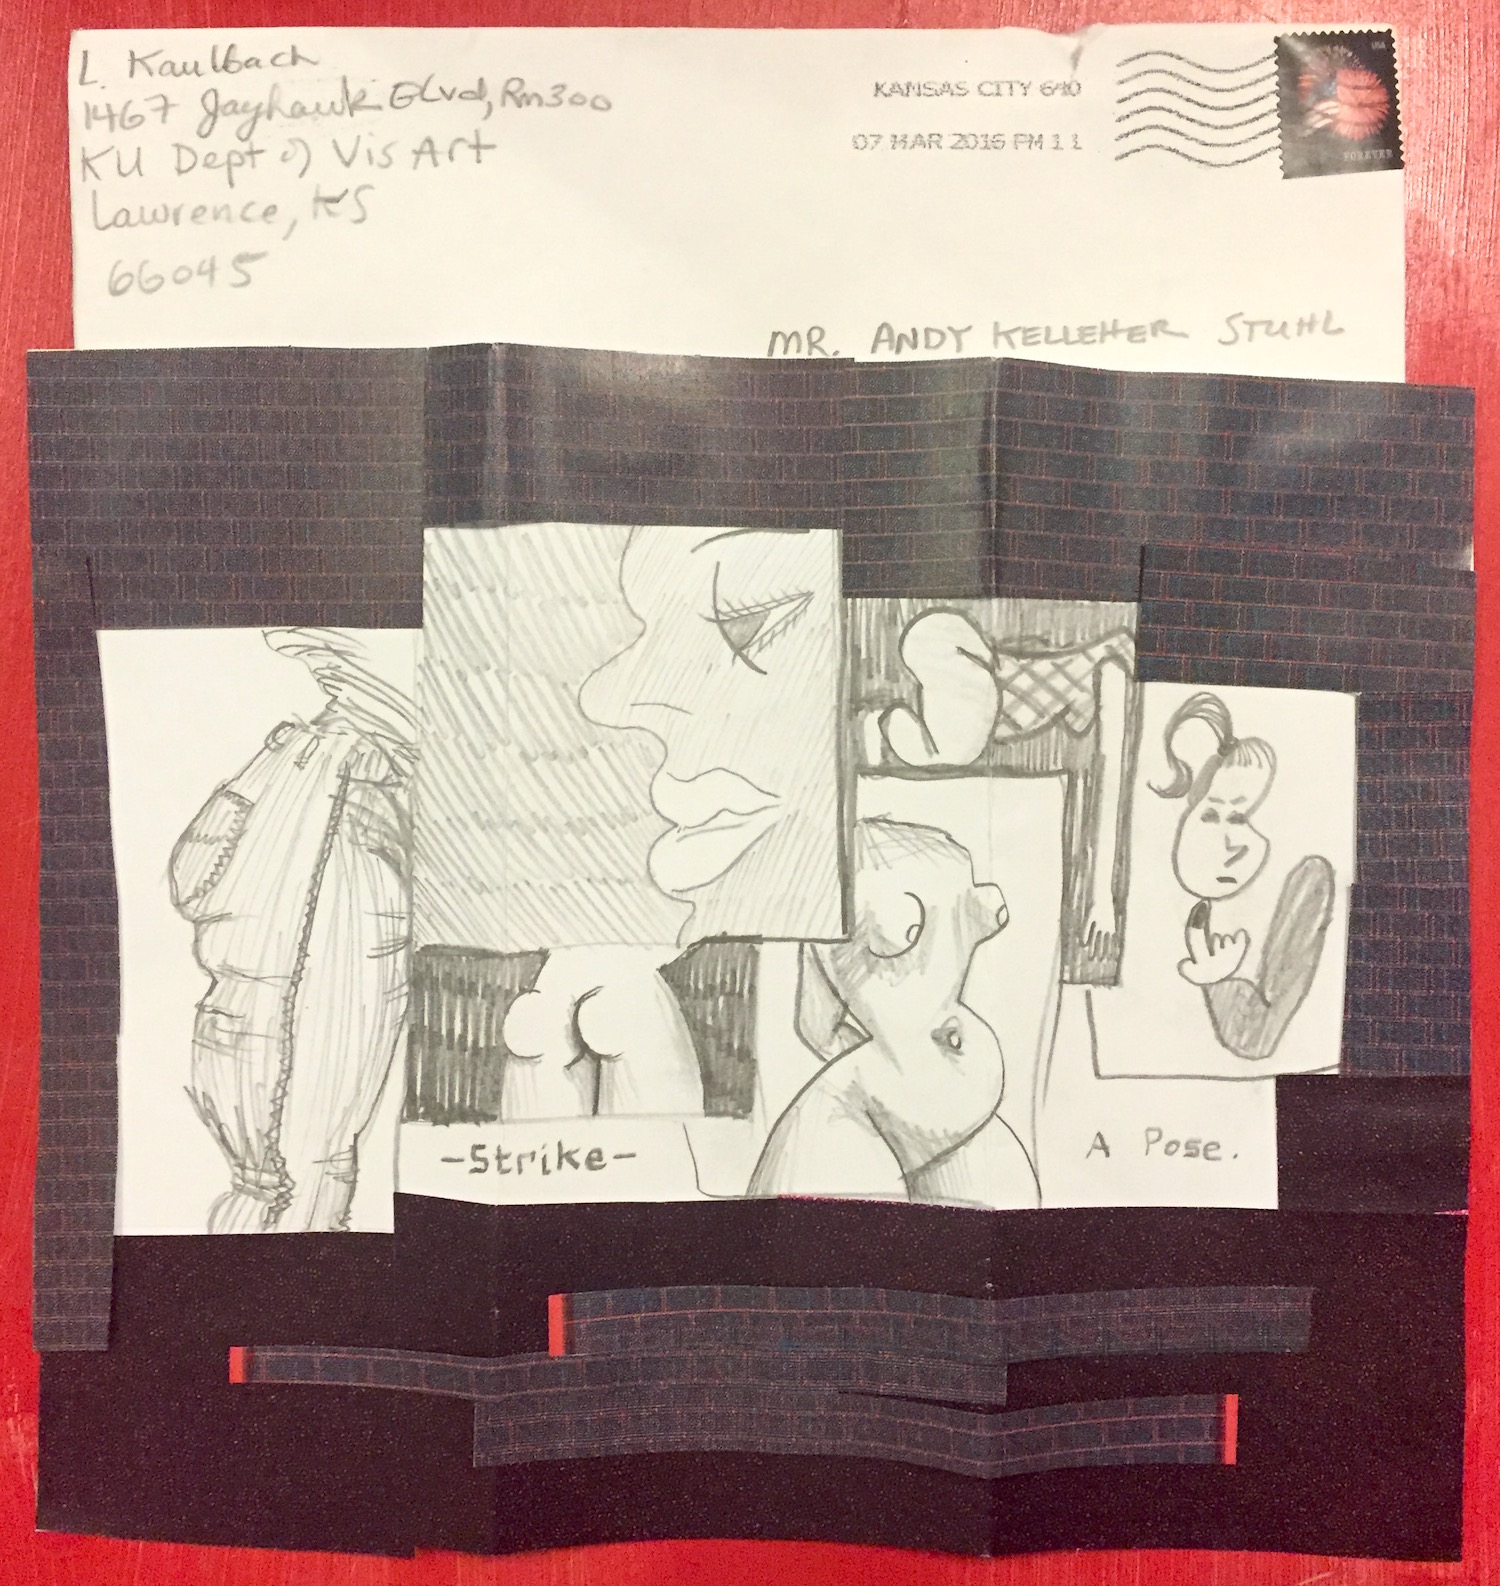 L. Kaulbach
1467 Jayhawk BLvd, Rm300
KU Dept of Vis Art
Lawrence, KS
66045
KANSAS CITY 640
07 MAR 2016 PM 1 L
USA
FOREVER
MR. ANDY KELLEHER STUHL
-Strike-
A Pose.